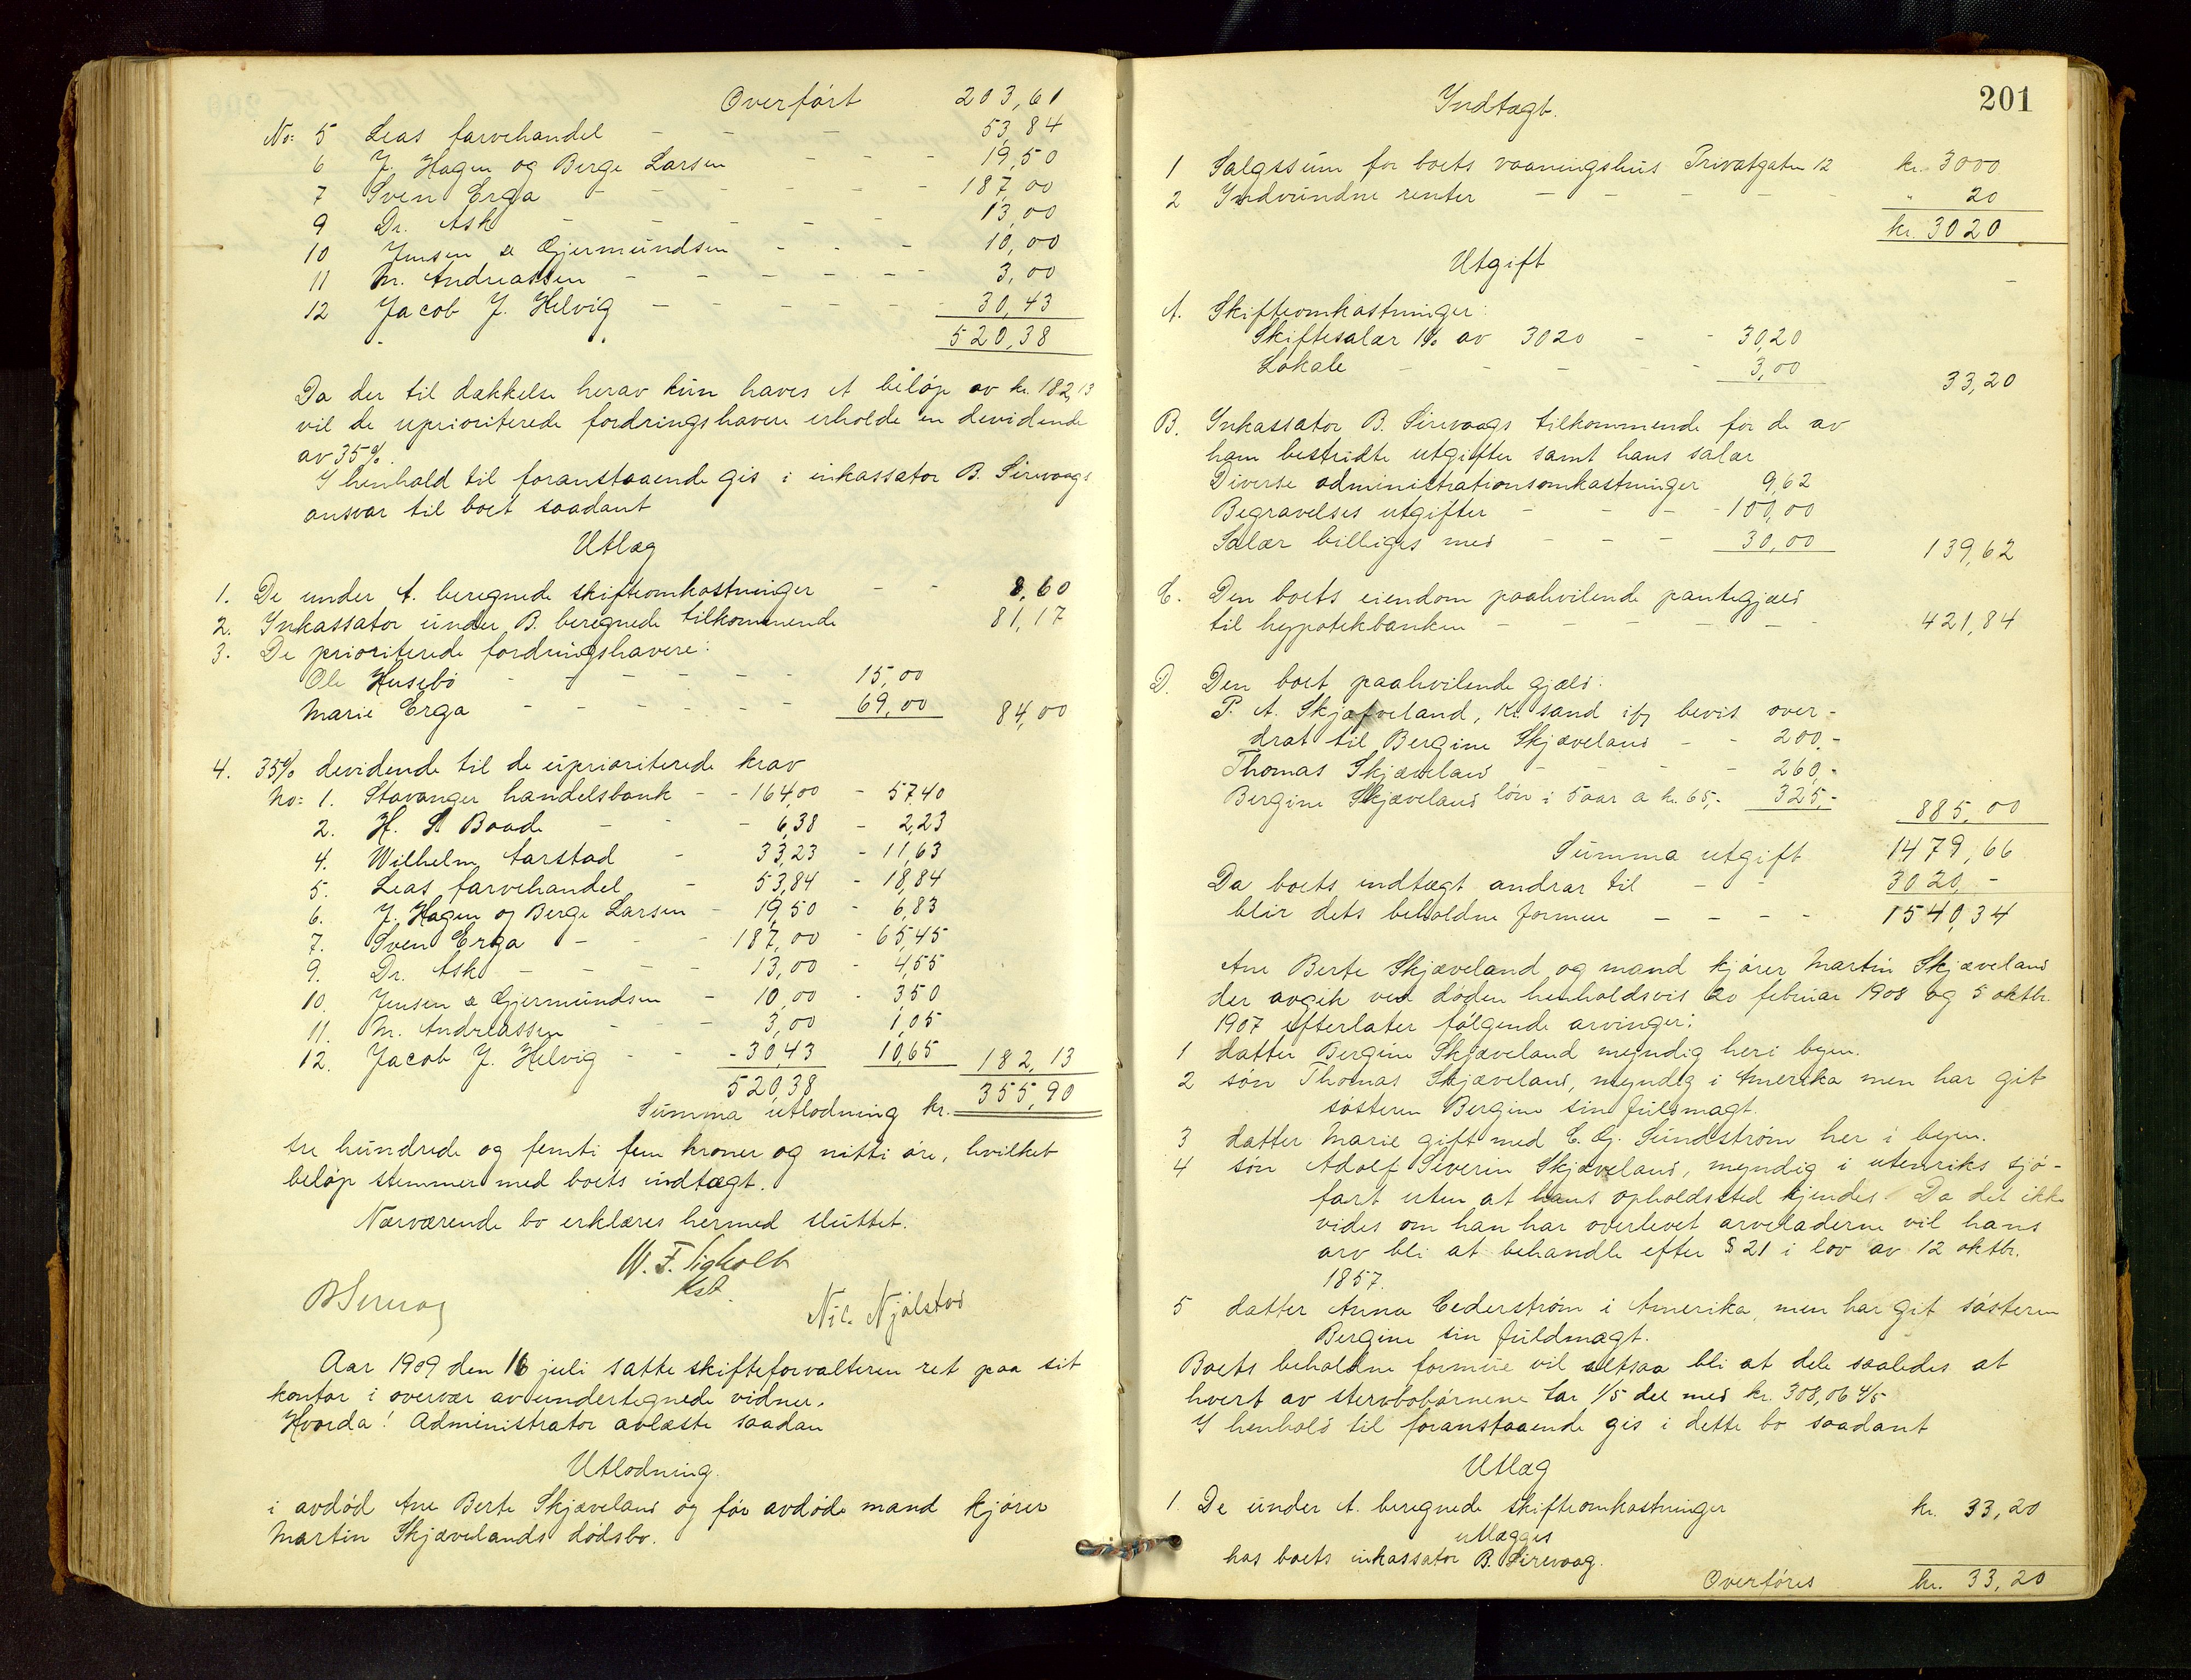 Overført 203,61
No: 5 Leas farvehandel - - - 53,84
6 J. Hagen og Berge Larsen - - - 19,50
7 Sven Erga - - - - - - 187,00
9 Dr. Ask - - - - - - 13,00
10 Jensen & Gjermundsen - - - 10,00
11 M. Andreassen - - - - - - 3,00
12 Jacob J. Helvig - - - - - - 30,43
520,38
Da der til dækkelse herav kun haves et beløp av kr. 182,13
vil de uprioriterede fordringshavere erholde en devidende
av 35%.
I henhold til foranstaaende gis i inkassator B. Sirevaags
ansvar til boet saadant
Utlæg
1. De under A. beregnede skifteomkostninger - - 8,60
2. Inkassator under B. beregnede tilkommende 81,17
3. De prioriterede fordringshavere:
Ole Husebø - - - - - - 15,00
Marie Erga - - - - - - 69,00 84,00
4. 35% devidende til de uprioriterede krav
No: 1. Stavanger handelsbank - - 164,00 - 57,40
2. H. S. Baade - - - 6,38 - 2,23
4. Wilhelm Aarstad - 33,23 - 11,63
5. Leas farvehandel - 53,84 - 18,84
6. J. Hagen og Berge Larsen - 19,50 - 6,83
7. Sven Erga - - - 187,00 - 65,45
9. Dr. Ask - - - - 13,00 - 4,55
10. Jensen & Gjermundsen - 10,00 - 3,50
11. M. Andreassen - - - 3,00 1,05
12. Jacob J. Helvig - - - 30,43 10,65 182,13
520,38 355,90
Summa utlodning kr.
tre hundrede og femti fem kroner og nitti øre, hvilket
beløp stemmer med boets indtægt.
Nærværende bo erklæres hermed sluttet.
Kst.
B Sirevaag Nil. Njølstad
Aar 1909 den 16 juli satte skifteforvalteren ret paa sit
kontor i overvær av undertegnede vidner.
Hvorda! Administrator avlæste saadan
Utlodning.
i avdød Ane Berte Skjæveland og før avdøde mand kjører
Martin Skjævelands dødsbo.
201
Indtægt.
1 Salgssum for boets vaaningshus Privatgaten 12 kr. 3000
2 Indvundne renter - - - - - - " 20
kr. 3020
Utgift
A. Skifteomkostninger:
Skiftesalær 1% av 3020 - - 30,20
Lokale - - - - - - 3,00 33,20
B. Inkassator B. Sirevaags tilkommende for de av
ham bestridte utgifter samt hans salær
Diverse administrationsomkostninger 9,62
Begravelses utgifter - - - - 100,00
Salær billiges med - - - 30,00 139,62
C. Den boets eiendom paahvilende pantegjæld
til hypotekbanken - - - - - - 421,84
D. Den boet paahvilende gjæld:
P. A. Skjæveland, Kr.sand ifg bevis over-
drat til Bergine Skjæveland - - 200,-
Thomas Skjæveland - - - - 260,-
Bergine Skjæveland løn i 5 aar a kr. 65,- 325,- 885,00
Summa utgift 1479,66
Da boets indtægt andrar til - - 3020,-
blir dets beholdne formue - - - - 1540,34
Ane Berte Skjæveland og mand kjører Martin Skjæveland
der avgik ved døden henholdsvis 20 februar 1908 og 5 oktbr.
1907 efterlater følgende arvinger:
1 datter Bergine Skjæveland myndig heri byen.
2 søn Thomas Skjæveland, myndig i Amerika men har git
søsteren Bergine sin fuldmagt.
3 datter Marie gift med C. G. Sundstrøm her i byen.
4 søn Adolf Severin Skjæveland, myndig i utenriks sjø-
fart uten at hans opholdssted kjendes. Da det ikke
vides om han har overlevet arveladerne vil hans
arv bli at behandle efter § 21 i lov av 12 oktbr.
1857.
5 datter Anna Cederstrøm i Amerika, men har git søsteren
Bergine sin fuldmagt.
Boets beholdne formue vil altsaa bli at dele saaledes at
hvert av stervbobørnene tar 1/5 del med kr. 308,06 4/5
I henhold til foranstaaende gis i dette bo saadant
Utlæg
1. De under A. beregnede skifteomkostninger kr. 33,20
utlægges
hos boets inkassator B. Sirevaag.
Overføres kr. 33,20